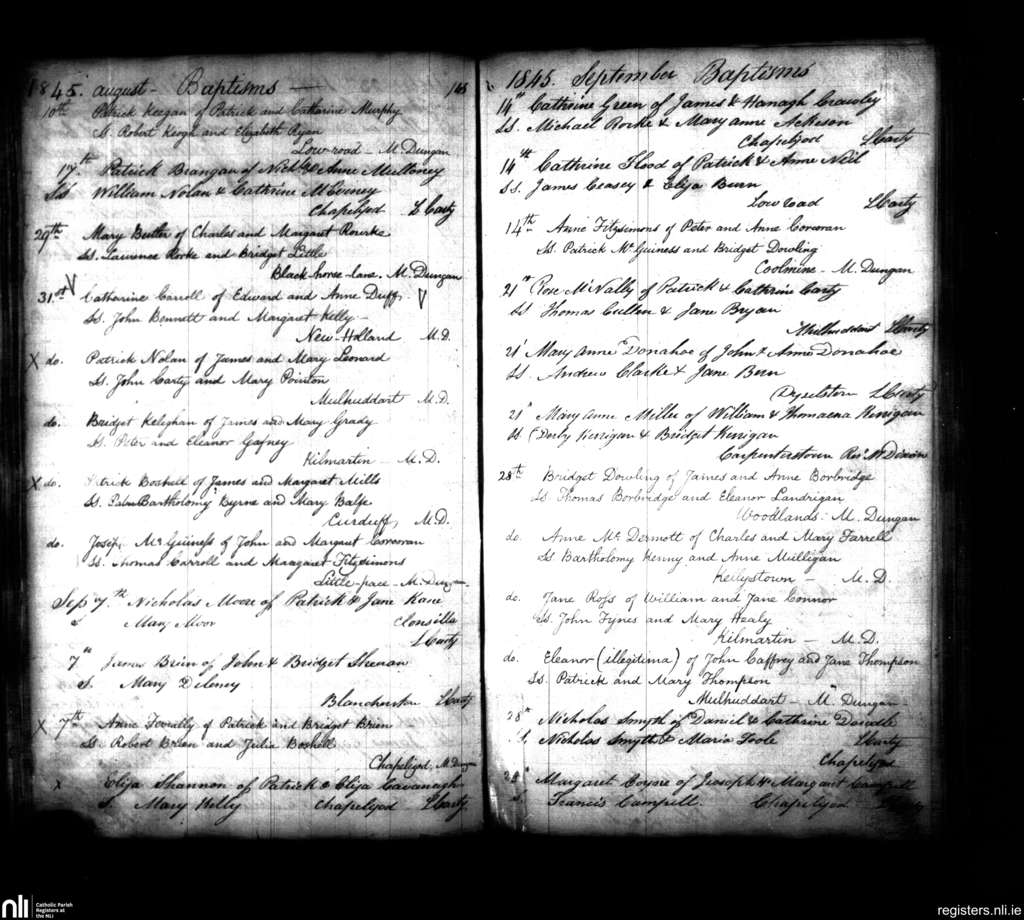 1845. August - Baptisms — 168
10th Patrick Keegan of Patrick and Catharine Murphy
Ss. Robert Keogh and Elizabeth Ryan
Low-road - M. Dungan
17th Patrick Brangan of Nichs & Anne Mulloney
Ss William Nolan & Cathrine McEvney
Chapelyod L Carty
29th Mary Butler of Charles and Margaret Rourke
Ss. Laurence Rorke and Bridget Little
Black-horse-lane. M. Dungan
31st Catharine Carroll of Edward and Anne Duff
Ss. John Bennett and Margaret Kelly -
New Holland M.D.
X do. Patrick Nolan of James and Mary Leonard
Ss. John Carty and Mary Pointon
Mulhuddart M.D.
do. Bridget Keleghan of James and Mary Grady
Ss. Peter and Eleanor Gafney
Kilmartin - M.D.
X do. Patrick Boshell of James and Margaret Mills
Ss. Bartholomy Byrne and Mary Balfe
Curduff, M.D.
do. Joseph McGuiness of John and Margaret Corcoran
Ss. Thomas Carroll and Margaret Fitzsimons
Little-pace - M. Dungan
Sep 7th Nicholas Moore of Patrick & Jane Kane
S Mary Moor Clonsilla
L Carty
7th James Brien of John & Bridget Sheenan
S. Mary Dileney
Blancharston L Carty
X 7th Anne of Patrick and Bridget Brien
Ss. Robert Brien and Julia Boshell
Chapelizod, M. Dungan
X Eliza Shannon of Patrick & Eliza Cavanagh
S. Mary Kelly Chapelyod L Carty
1845. September Baptisms
14th Cathrine Green of James & Hanagh Crawley
Ss. Michael Rorke & Mary Anne Ackison
Chapelyod L Carty
14th Cathrine Flood of Patrick & Anne Neil
Ss. James Ceasey & Eliza Burn
Low Road L Carty
14th Anne Fitzsimons of Peter and Anne Corcoran
Ss. Patrick McGuiness and Bridget Dowling
Coolmine - M. Dungan
21st Rose McNally of Patrick & Cathrine Carty
Ss Thomas Cullen & Jane Bryan
Mulhuddart L Carty
21 Mary Anne Donahoe of John & Anne Donahoe
Ss. Andrew Clarke & Jane Burn
Dyselstown L Carty
21st Mary Anne Miller of William & Thomasna Kerrigan
Ss Derby Kerrigan & Bridget Kerrigan
Carpenterstown Revd W Dixon
28th Bridget Dowling of James and Anne Borbridge
Ss Thomas Borbridge and Eleanor Landrigan
Woodlands: M. Dungan
do. Anne McDermott of Charles and Mary Farrell
Ss Bartholomy Kenny and Anne Milligan
Kellystown - M.D.
do. Jane Ross of William and Jane Connor
Ss. John Tynes and Mary Healy
Kilmartin - M.D.
do. Eleanor (illegitima) of John Caffrey and Jane Thompson
Ss. Patrick and Mary Thompson
Mulhuddart - M. Dungan -
28th Nicholas Smyth of Daniel & Cathrine Dandle
S. Nicholas Smyth & Maria Toole L Carty
Chapelyod
28th Margaret Coyne of Joseph & Margaret Campell
S. Francis Campell. Chapelyod
nli Catholic Parish
Registers at
the NLI
registers.nli.ie